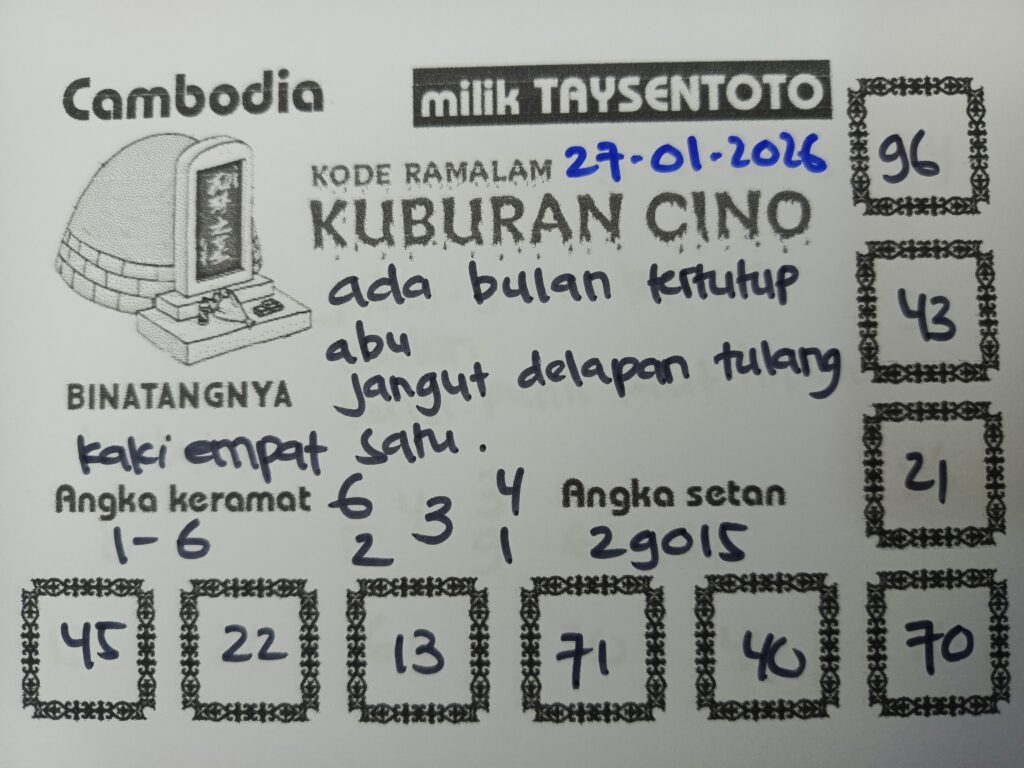 Cambodia
milik TAYSENTOTO
KODE RAMALAM 27-01-2026
KUBURAN CINO
ada bulan tertutup
abu
jangut delapan tulang
BINATANGNYA
kaki empat satu.
Angka keramat
1-6
6 4
3
2 1
Angka setan
29015
96
43
21
45 22 13 71 40 70